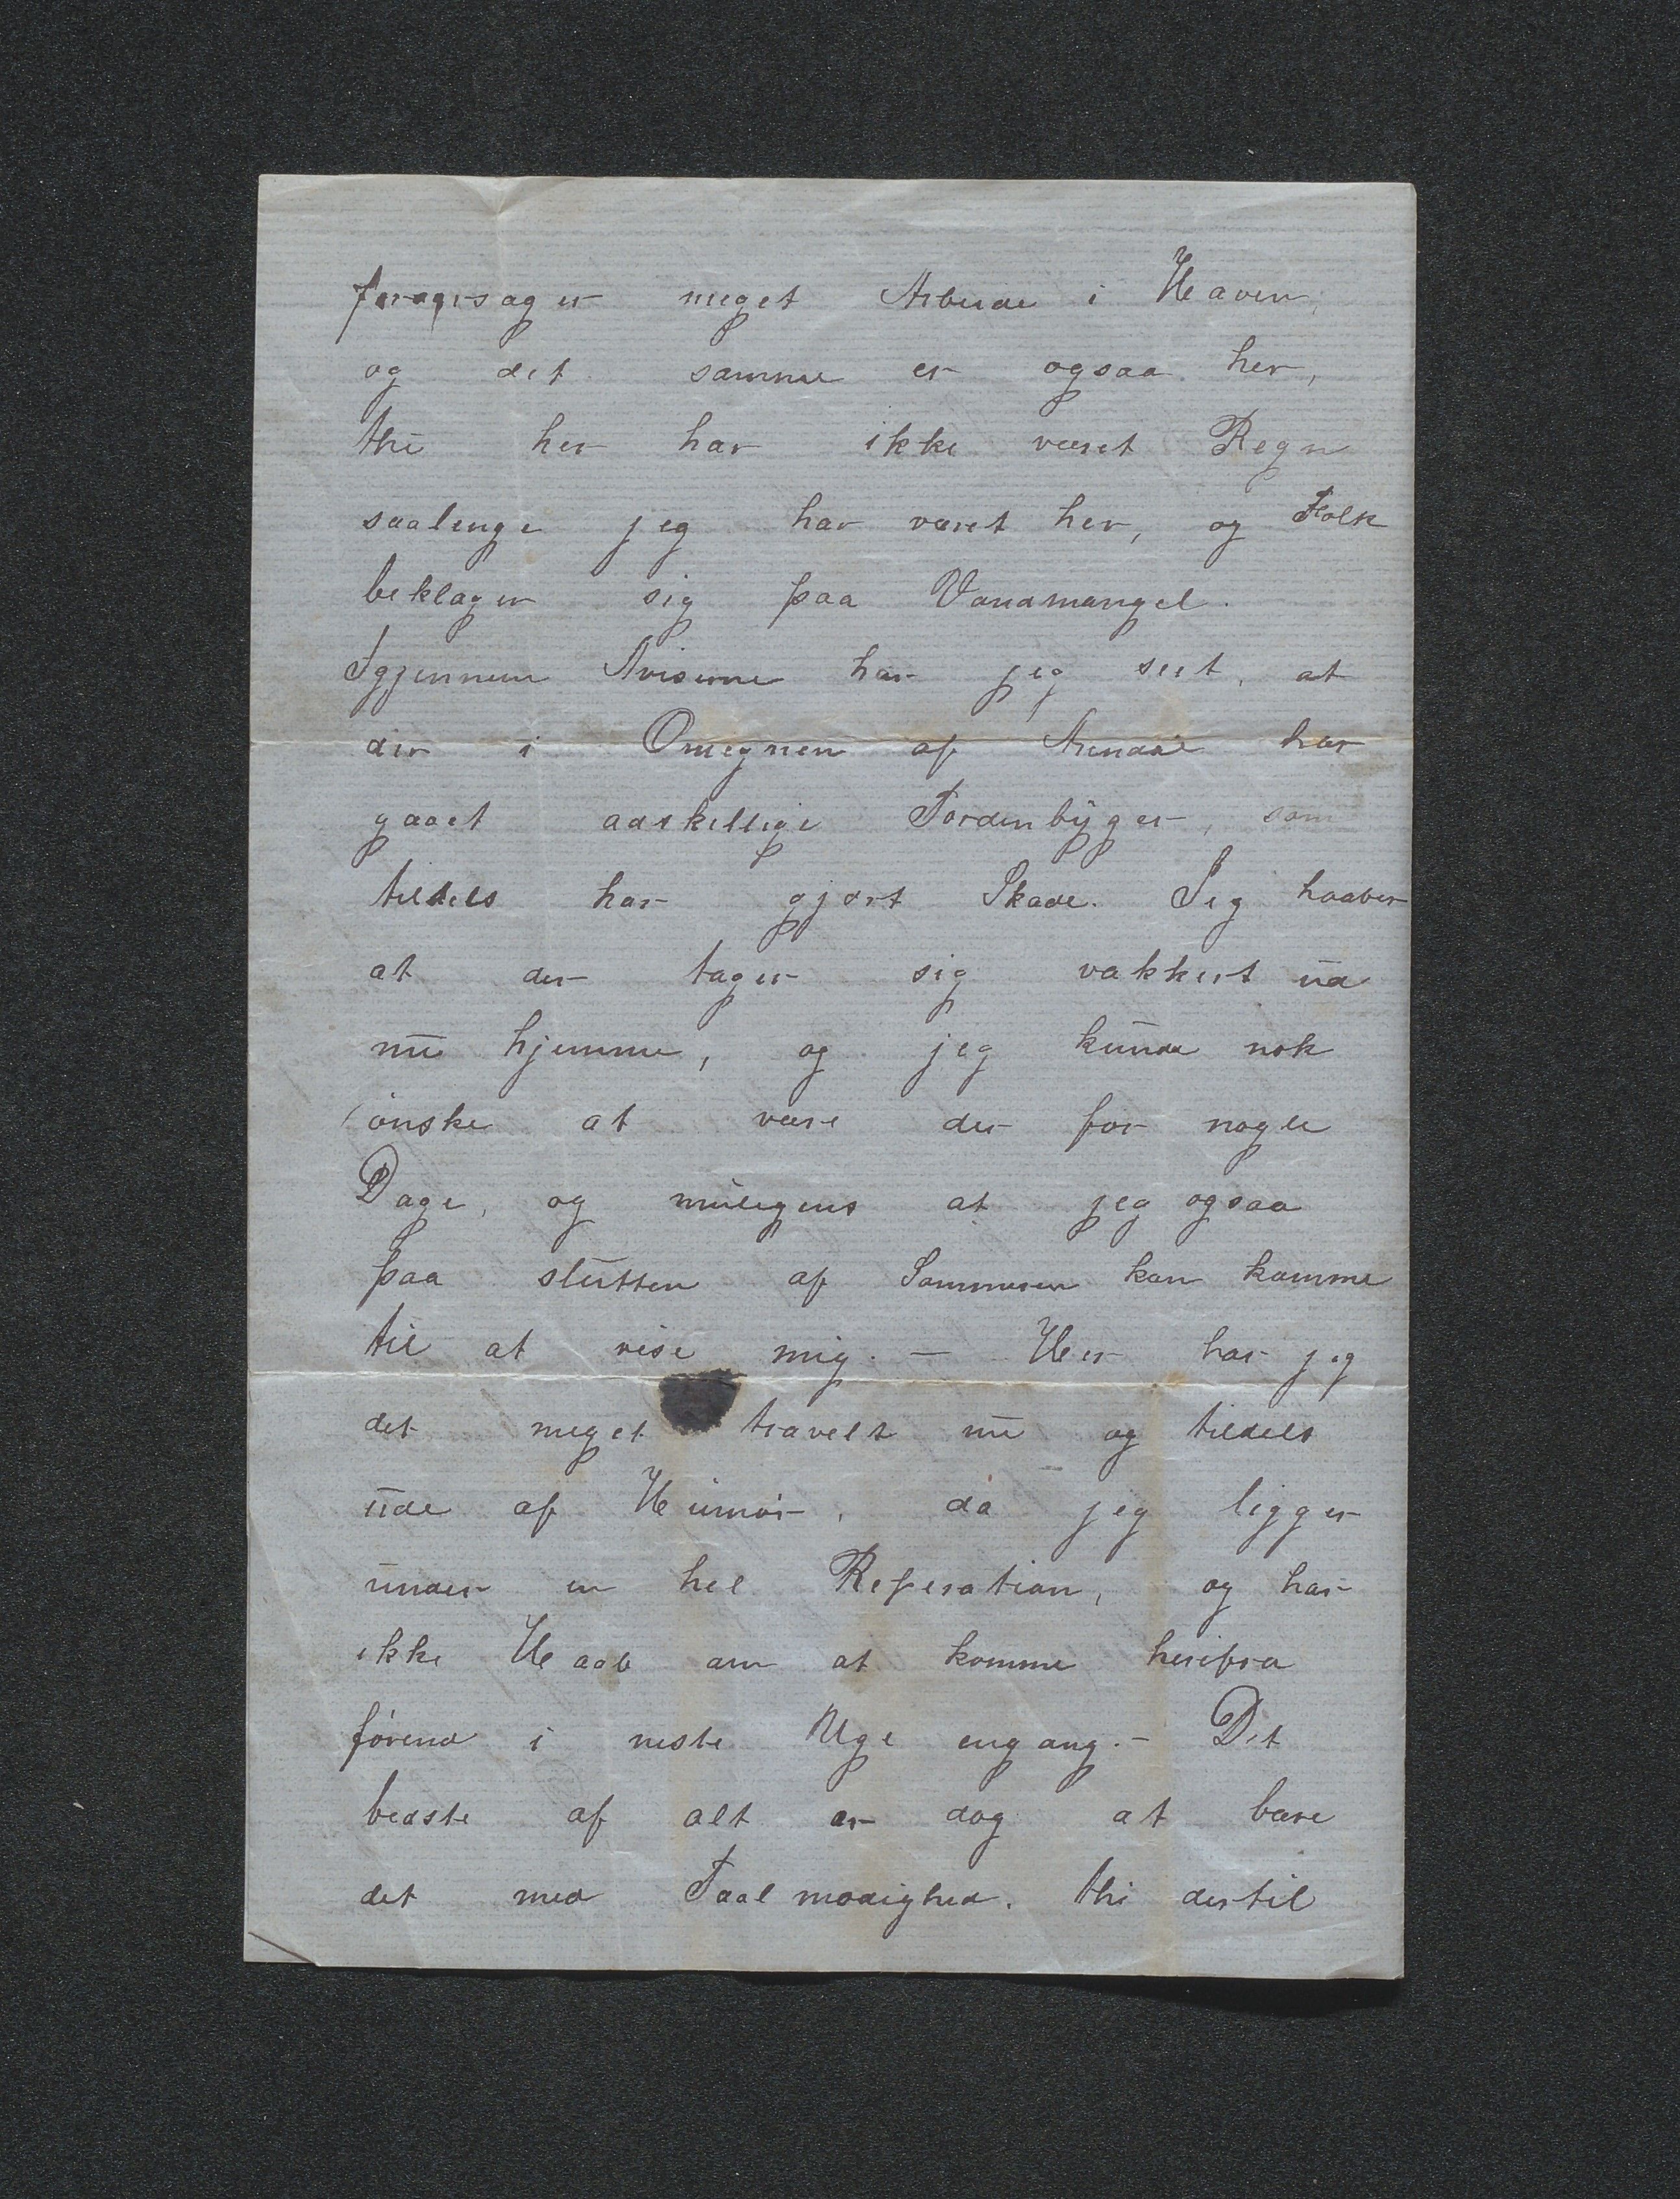 foraarsager meget Arbeide i Haven,
og det samme er ogsaa her,
thi her har ikke været Regn
saalenge jeg har været her, og Folk
beklager sig paa Vandmangel.
Igjennem Aviserne har jeg seet, at
der i Omegnen af Arendal har
gaaet adskellige Tordenbyger, som
tildels har gjørt Skade. Jeg haaber
at der tager sig vakkert ud
nu hjemme, og jeg kunde nok
ønske at være der for nogle
Dage, og muligens at jeg ogsaa
paa slutten af Sommeren kan komme
til at vise mig. — Her har jeg
det meget travelt nu og tildels
ude af Humør, da jeg ligger
under en hel Reperation, og har
ikke Haab om at komme herifra
førend i neste Uge engang. — Det
bedste af alt er dog at bære
det med Taalmodighed. thi dertil